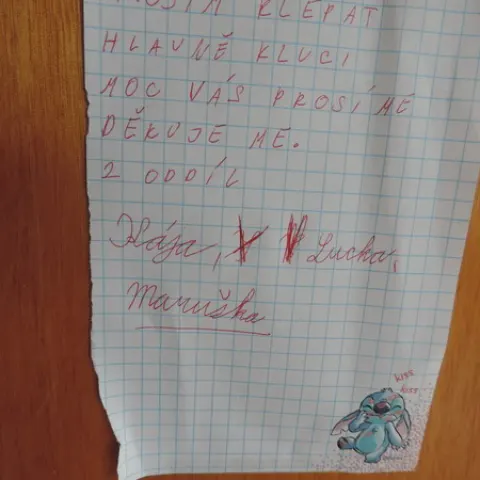 PROSÍM KLEPAT
HLAVNĚ KLUCI
MOC VÁS PROSÍME
DĚKUJEME.
2 ODDÍL
Kája, Lucka,
Maruška
kiss
kiss